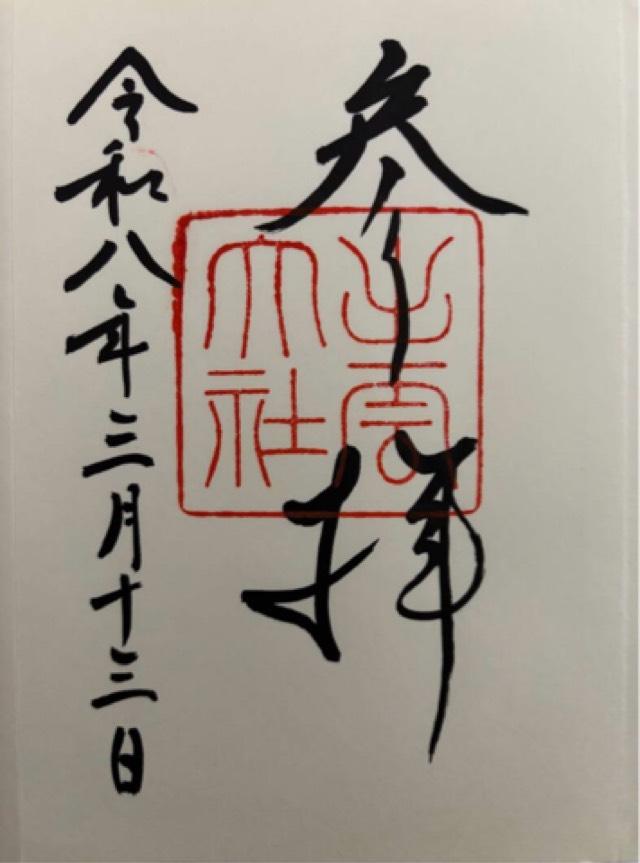 参拝
出雲大社
令和八年三月十三日